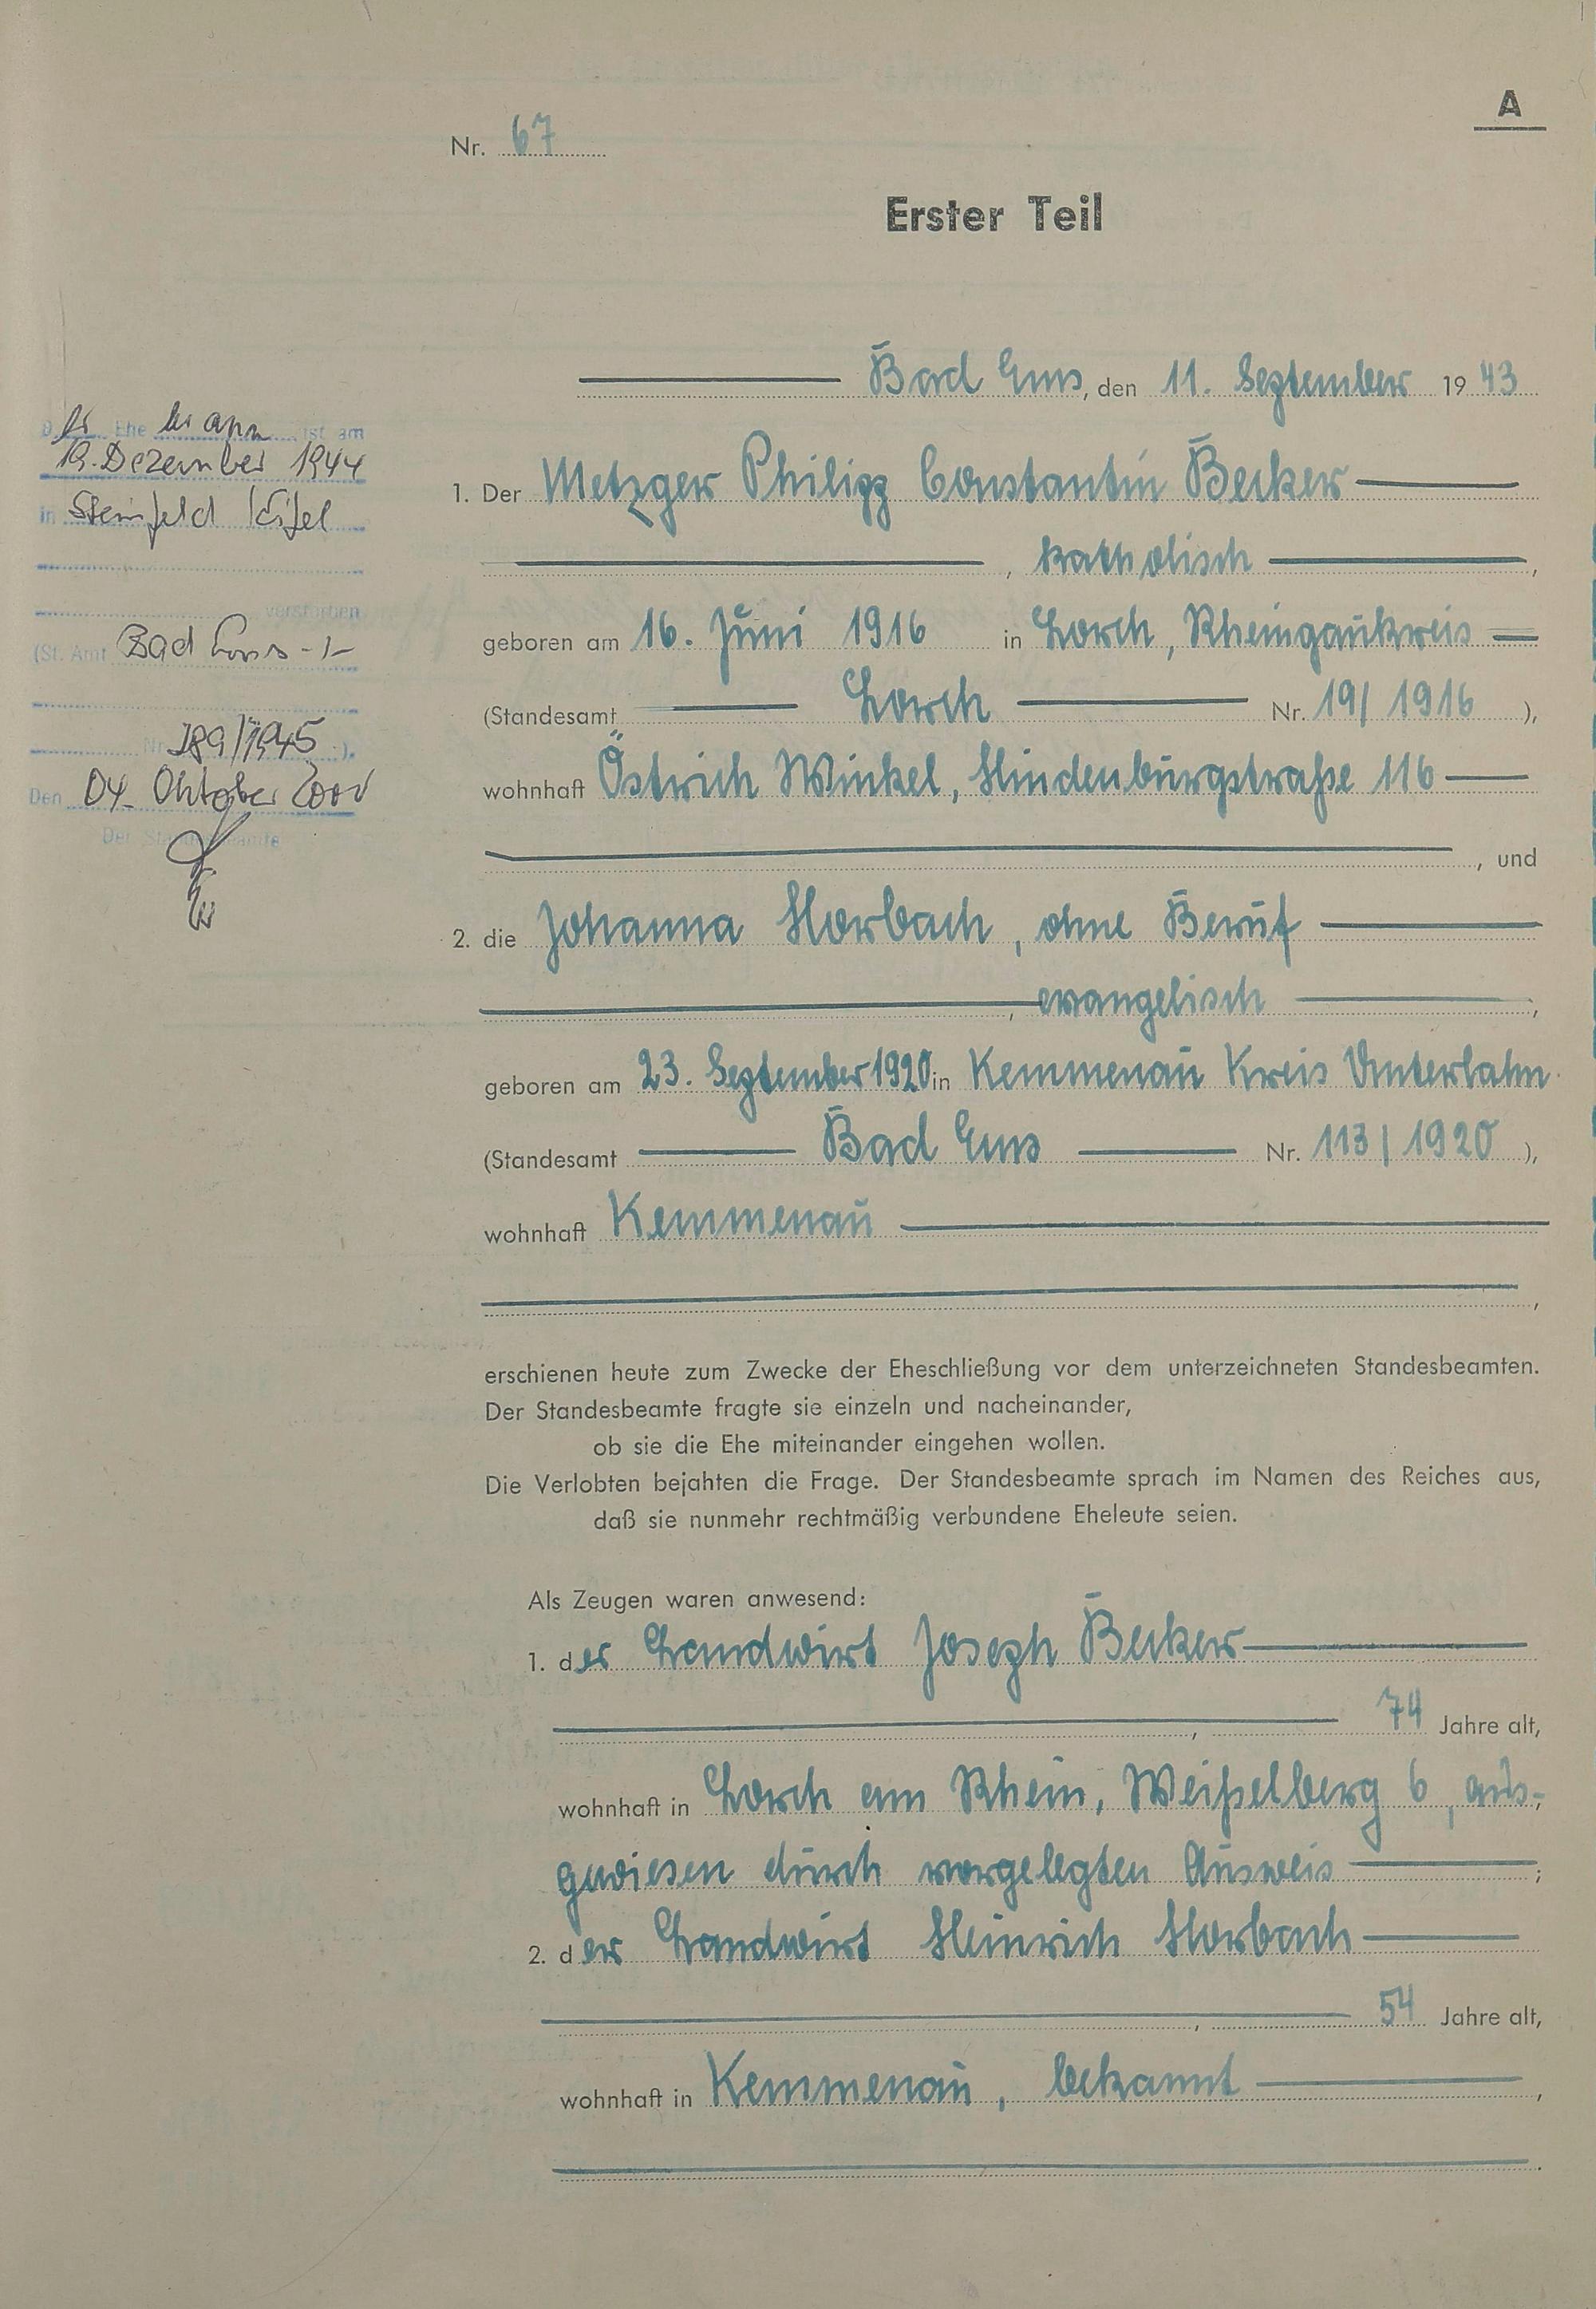 A
Nr. 67
Erster Teil
Bad Ems, den 11. September 1943
Der Ehemann ist am
19. Dezember 1944
in Steinfeld / Eifel
verstorben
(St. Amt Bad Ems -/-
Nr. 189/1945 ).
Den 04. Oktober
Der Standesbeamte
1. Der Metzger Philipp Constantin Becker
, katholisch ,
geboren am 16. Juni 1916 in Lorch, Rheingaukreis
(Standesamt Lorch Nr. 19/1916 ),
wohnhaft Östrich Winkel, Hindenburgstraße 116
, und
2. die Johanna Horbach, ohne Beruf
, evangelisch ,
geboren am 23. September 1920 in Kemmenau Kreis Unterlahn
(Standesamt Bad Ems Nr. 113/1920 ),
wohnhaft Kemmenau
,
erschienen heute zum Zwecke der Eheschließung vor dem unterzeichneten Standesbeamten.
Der Standesbeamte fragte sie einzeln und nacheinander,
ob sie die Ehe miteinander eingehen wollen.
Die Verlobten bejahten die Frage. Der Standesbeamte sprach im Namen des Reiches aus,
daß sie nunmehr rechtmäßig verbundene Eheleute seien.
Als Zeugen waren anwesend:
1. der Landwirt Joseph Becker
, 74 Jahre alt,
wohnhaft in Lorch am Rhein, Weißelberg 6, aus-
gewiesen durch vorgelegten Ausweis ;
2. der Landwirt Heinrich Horbach
, 54 Jahre alt,
wohnhaft in Kemmenau, bekannt ,
.